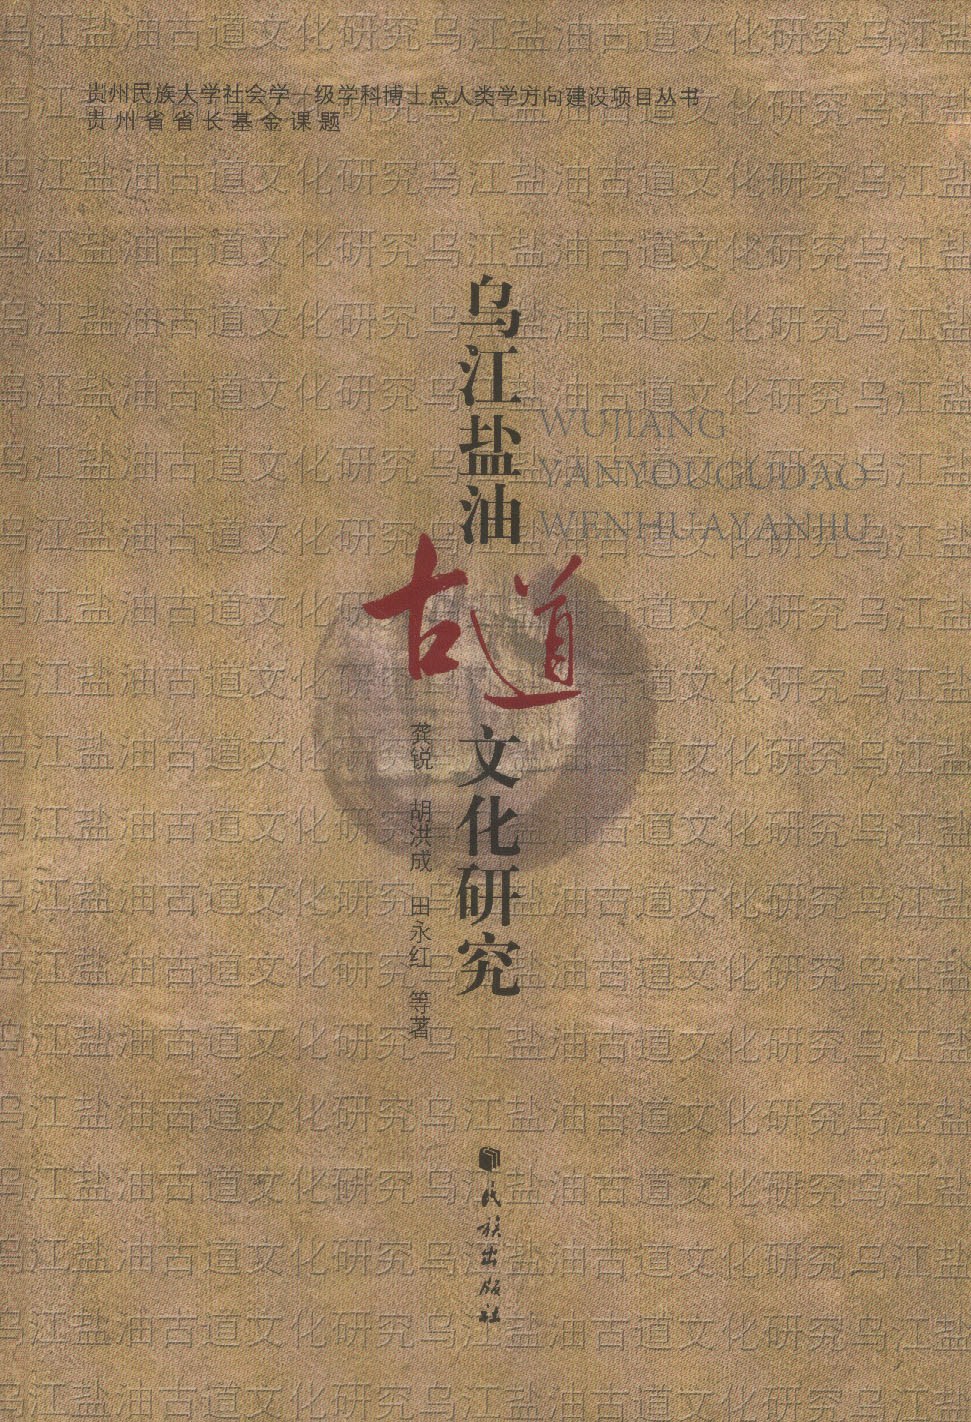 贵州民族大学社会学一级学科博士点人类学方向建设项目丛书
贵州省省长基金课题
乌江盐油古道文化研究
WUJIANG
YANYOUGUDAO
WENHUAYANJIU
龚锐 胡洪成 田永红 等著
民族出版社